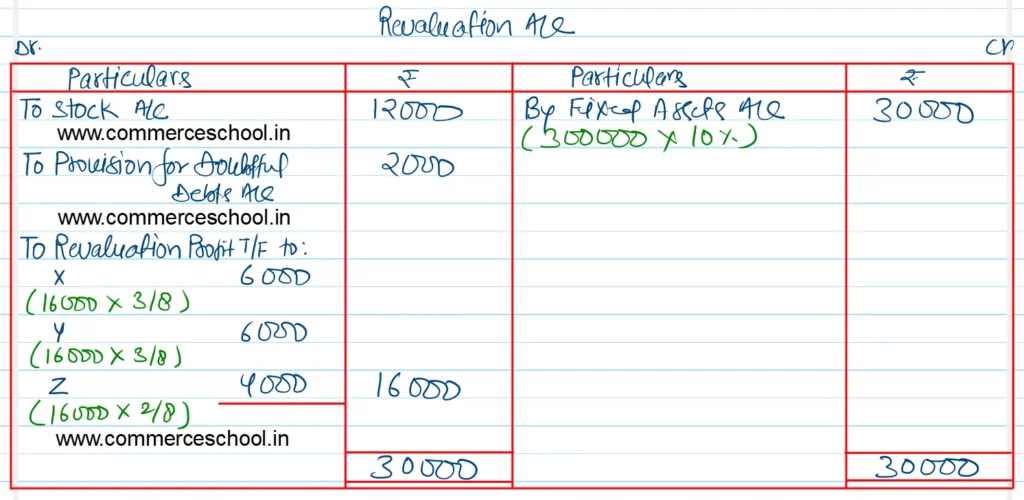 Revaluation A/c
Dr. Cr
Particulars ₹ Particulars ₹
To Stock A/c 12000 By Fixed Assets A/c 30000
www.commerceschool.in (300000 x 10%)
To Provision for Doubtful 2000
Debts A/c
www.commerceschool.in
To Revaluation Profit T/F to:
X 6000
(16000 x 3/8)
Y 6000
(16000 x 3/8)
Z 4000 16000
(16000 x 2/8)
www.commerceschool.in
30000 30000